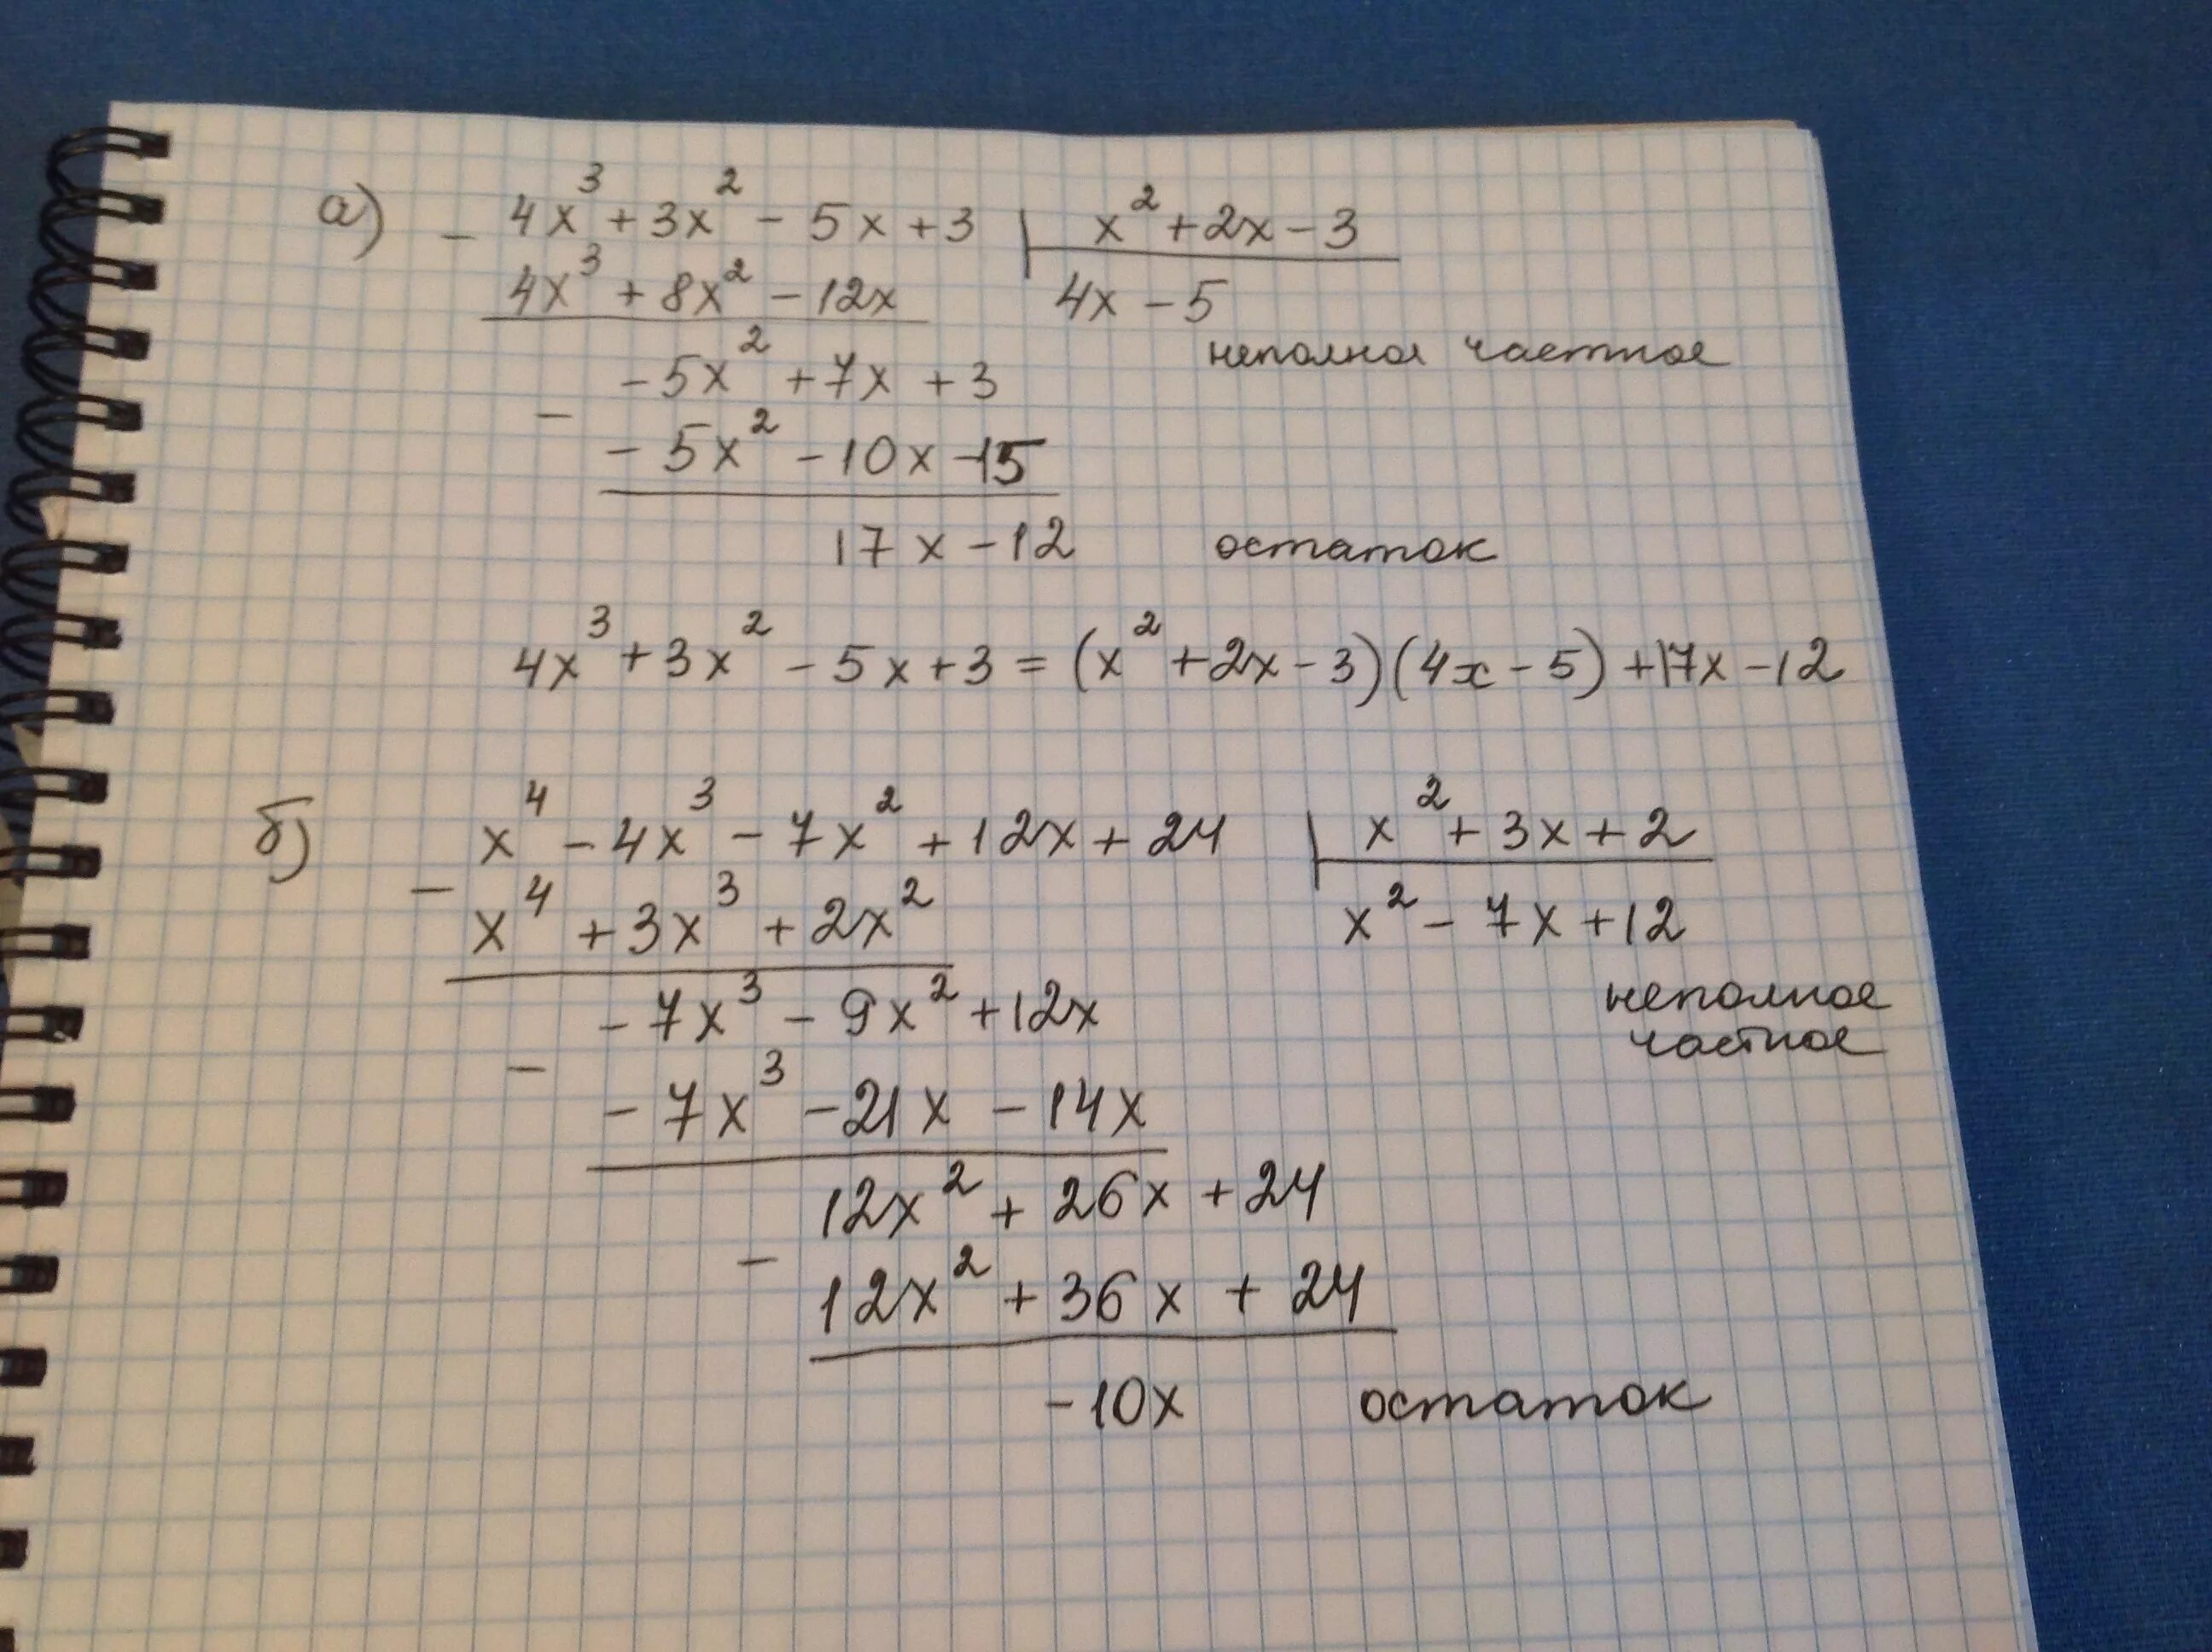 а) - 4x³ + 3x² - 5x + 3 | x² + 2x - 3
4x³ + 8x² - 12x 4x - 5
неполное частное
-5x² + 7x + 3
-
-5x² - 10x -15
17x - 12 остаток
4x³ + 3x² - 5x + 3 = (x² + 2x - 3)(4x - 5) + 17x - 12
б) x⁴ - 4x³ - 7x² + 12x + 24 | x² + 3x + 2
-
x⁴ + 3x³ + 2x² x² - 7x + 12
неполное
частное
-7x³ - 9x² + 12x
-
-7x³ - 21x - 14x
12x² + 26x + 24
-
12x² + 36x + 24
-10x остаток